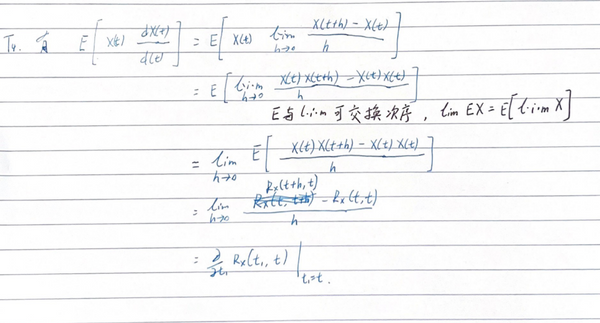 T4. 有 E[ X(t) dX(t)/d(t) ] = E[ X(t) lim h→0 X(t+h) - X(t) / h ]
= E[ l·i·m h→0 X(t)X(t+h) - X(t)X(t) / h
E与l·i·m可交换次序, lim EX = E[l·i·m X]
= lim h→0 E[ X(t)X(t+h) - X(t)X(t) / h ]
Rx(t+h, t)
= lim h→0 Rx(t, t+h) - Rx(t,t) / h
= ∂/∂t₁ Rx(t₁, t) | t₁=t.